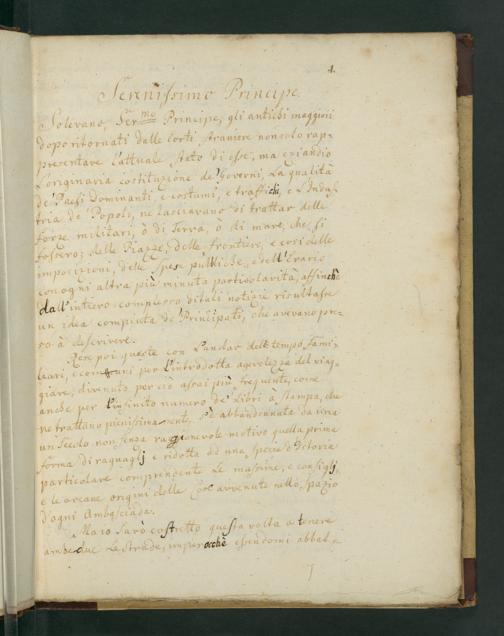 1.
Serenissimo Principe
Solevano, Ser.mo Principe, gli antichi maggiori
dopo ritornati dalle Corti straniere non solo rap-
presentare l'attuale stato di esse, ma eziandio
l'originaria costituzione de' Governi, la qualità
de' Paesi dominanti, e costumi, e traffichi, e l'Indus-
tria de' Popoli, ne lasciavano di trattar delle
forze militari, ò di Terra, ò di mare, che si
fossero; delle Piazze, delle frontiere, e così delle
imposizioni, delle spese pubbliche, e dell'Erario
con ogni altra più minuta particolarità, affinchè
dall'intiero complesso di tali notizie risultasse
un idea compiuta de' Principati, che avevano pre-
so à descrivere.
Rese poi queste con l'andar del tempo fami-
liari, e comuni per l'introdotta agevolezza del viag-
giare, divenuto per ciò assai più frequente, come
anche per l'infinito numero de' Libri à stampa, che
ne trattano pienissimamente, s'è abbandonata da circa
un secolo non senza raggionevole motivo quella prima
forma di raguaglj e ridotta ad una spezie d'Istoria
particolare comprendente le massime, e consiglj,
e le arcane origini delle Cose avvenute nello spazio
d'ogni Ambasciada.
Ma io sarò costretto questa volta a tenere
ambedue le strade, imperocchè essendomi abbat-